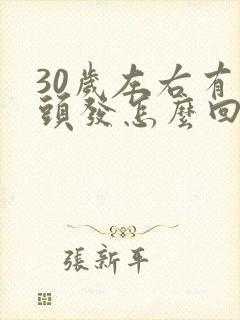 30歲左右有
頭發怎麼回
張新平